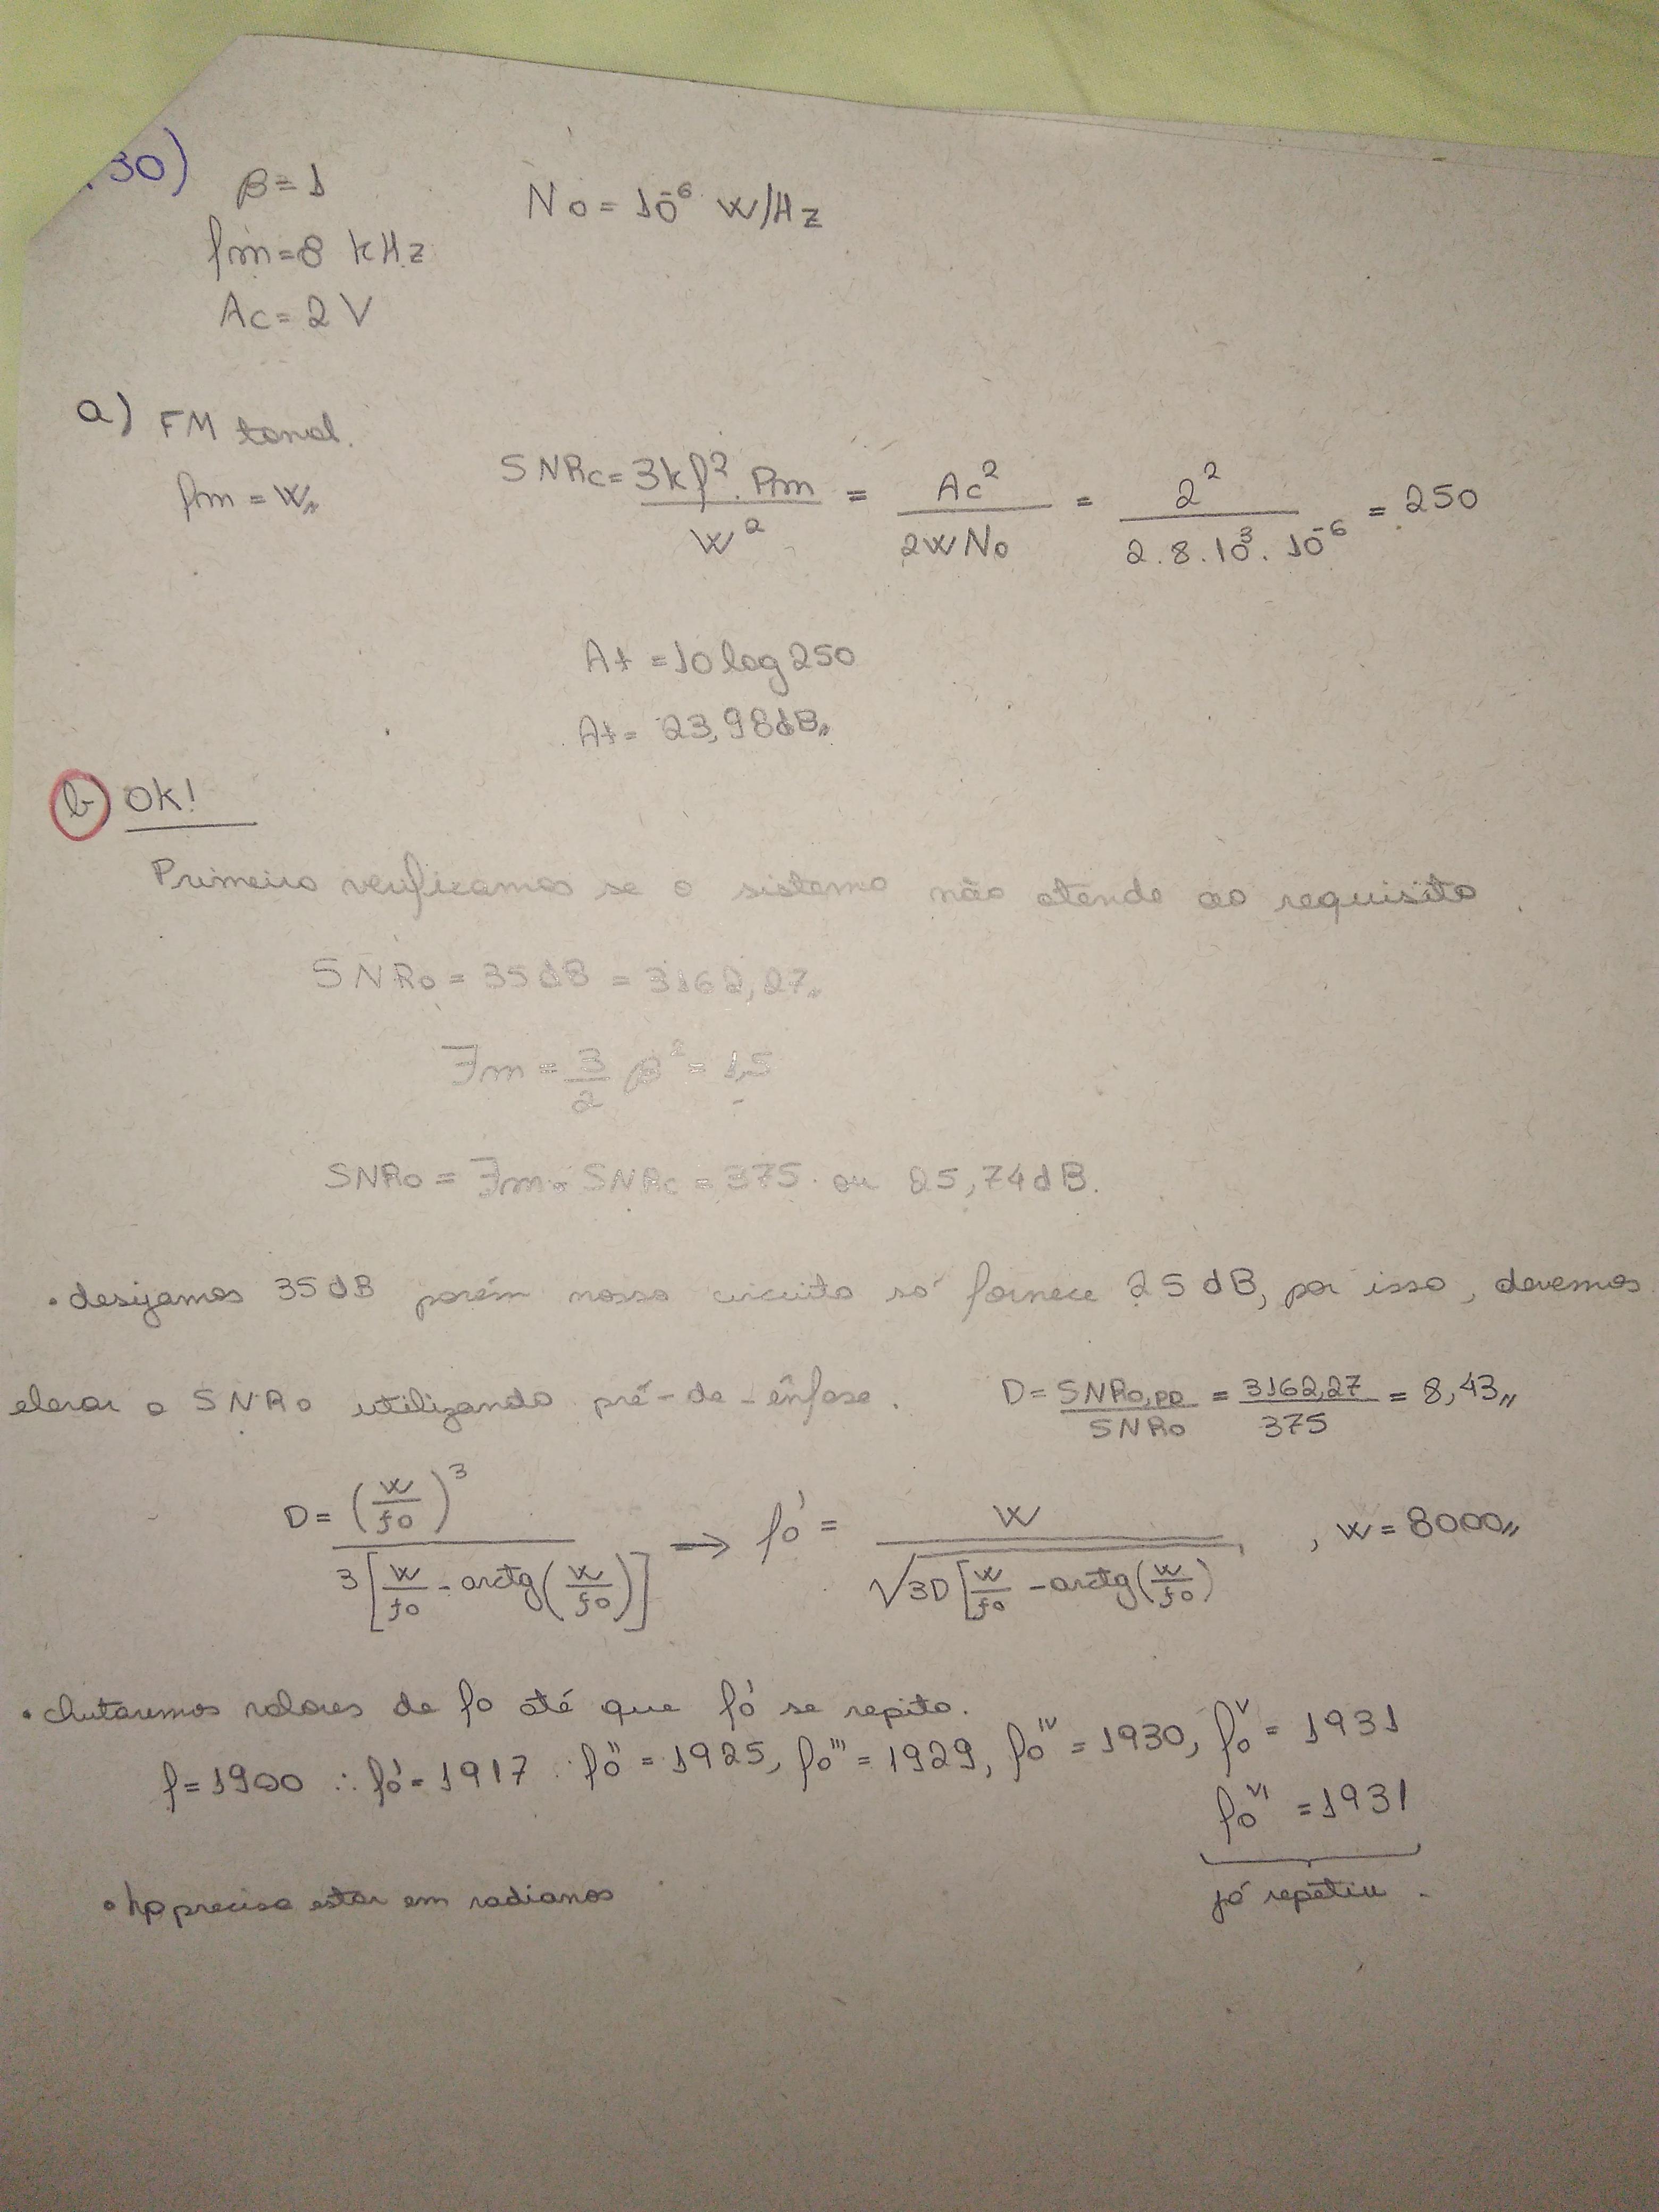 .30)
β=1
No=10⁻⁶ W/Hz
fm=8 kHz
Ac=2 V
a) FM tonal.
fm=W,,
SNRc=3kf².Pm/W² = Ac²/2WNo = 2²/2.8.10³.10⁻⁶ = 250
At =10log250
At= 23,98dB,,
b) OK!
Primeiro verificamos se o sistema não atende ao requisito.
SNRo=35dB=3162,27,,
Fm=3/2 β²=1,5
SNRo=Fm.SNRc=375. ou 25,74dB.
•desejamos 35dB porém nosso circuito só fornece 25dB, por isso, devemos
elevar o SNRo utilizando pré-de-ênfase. D=SNRo,PD/SNRo=3162,27/375=8,43,,
D=(W/fo)³/3[W/fo-arctg(W/fo)] → fo'=W/√3D[W/fo-arctg(W/fo), W=8000,,
•chutaremos valores de fo até que fo' se repita.
f=1900 ∴ fo'=1917. fo''=1925, fo'''=1929, fo^IV=1930, fo^V=1931
fo^VI=1931
já repetiu.
•hp precisa estar em radianos